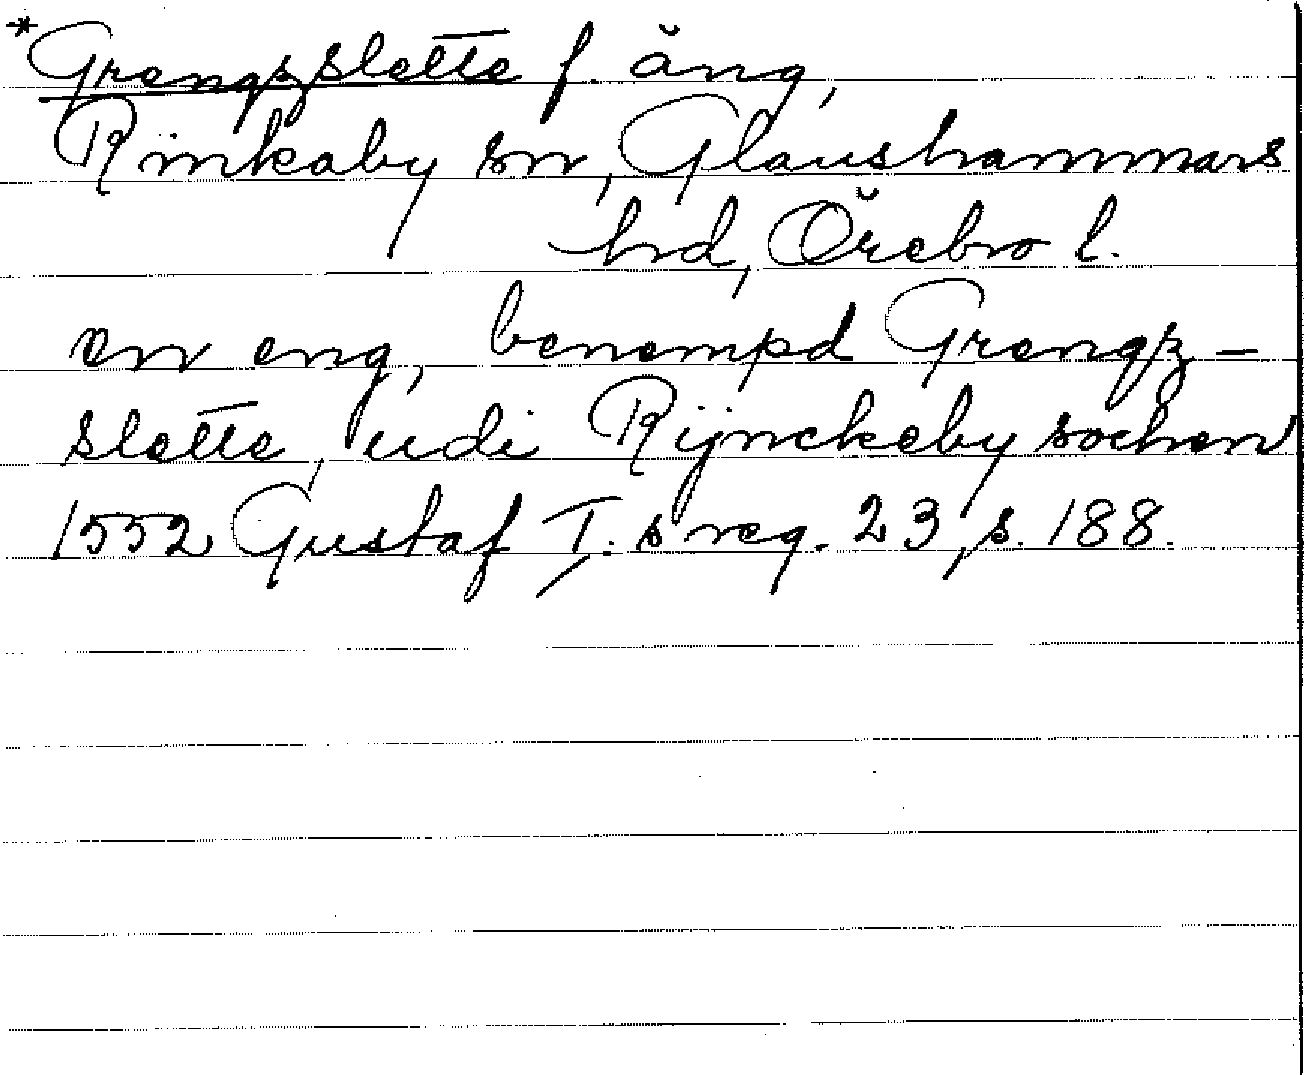 *Grengzslette f. äng,
Rinkaby sn, Glanshammars
hd, Örebro l.
en eng, benempd Grengz-
slette, udi Rijnckeby sochen
1552 Gustaf I:s reg. 23, s. 188.